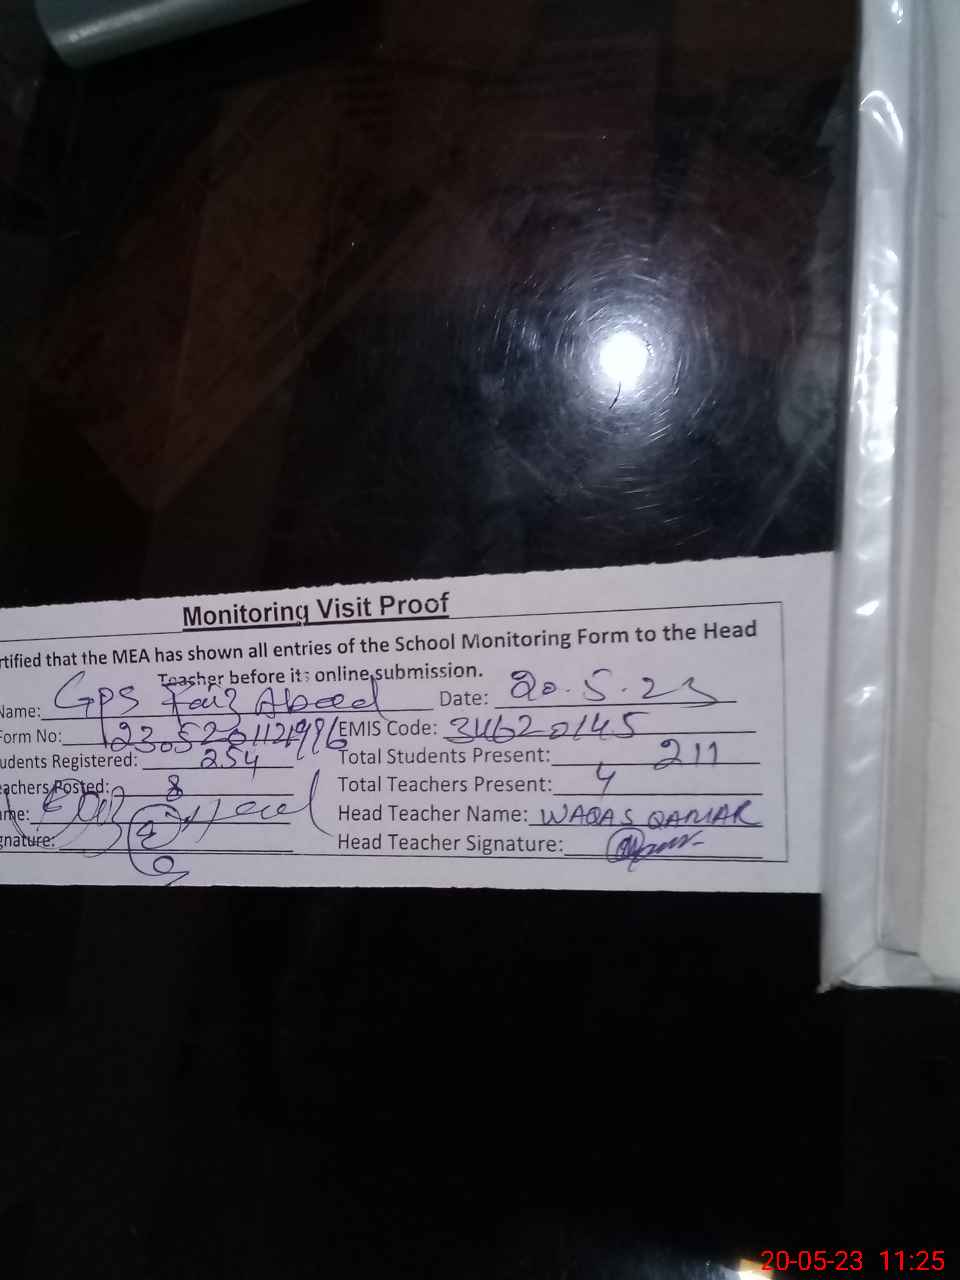 Monitoring Visit Proof
rtified that the MEA has shown all entries of the School Monitoring Form to the Head
Teacher before its online submission.
Name: GPS Faiz Abad Date: 20.5.23
Form No: EMIS Code: 34620145
udents Registered: 254 Total Students Present: 211
achers Posted: 8 Total Teachers Present: 4
me: Head Teacher Name: WAQAS QAMAR
gnature: Head Teacher Signature:
20-05-23 11:25